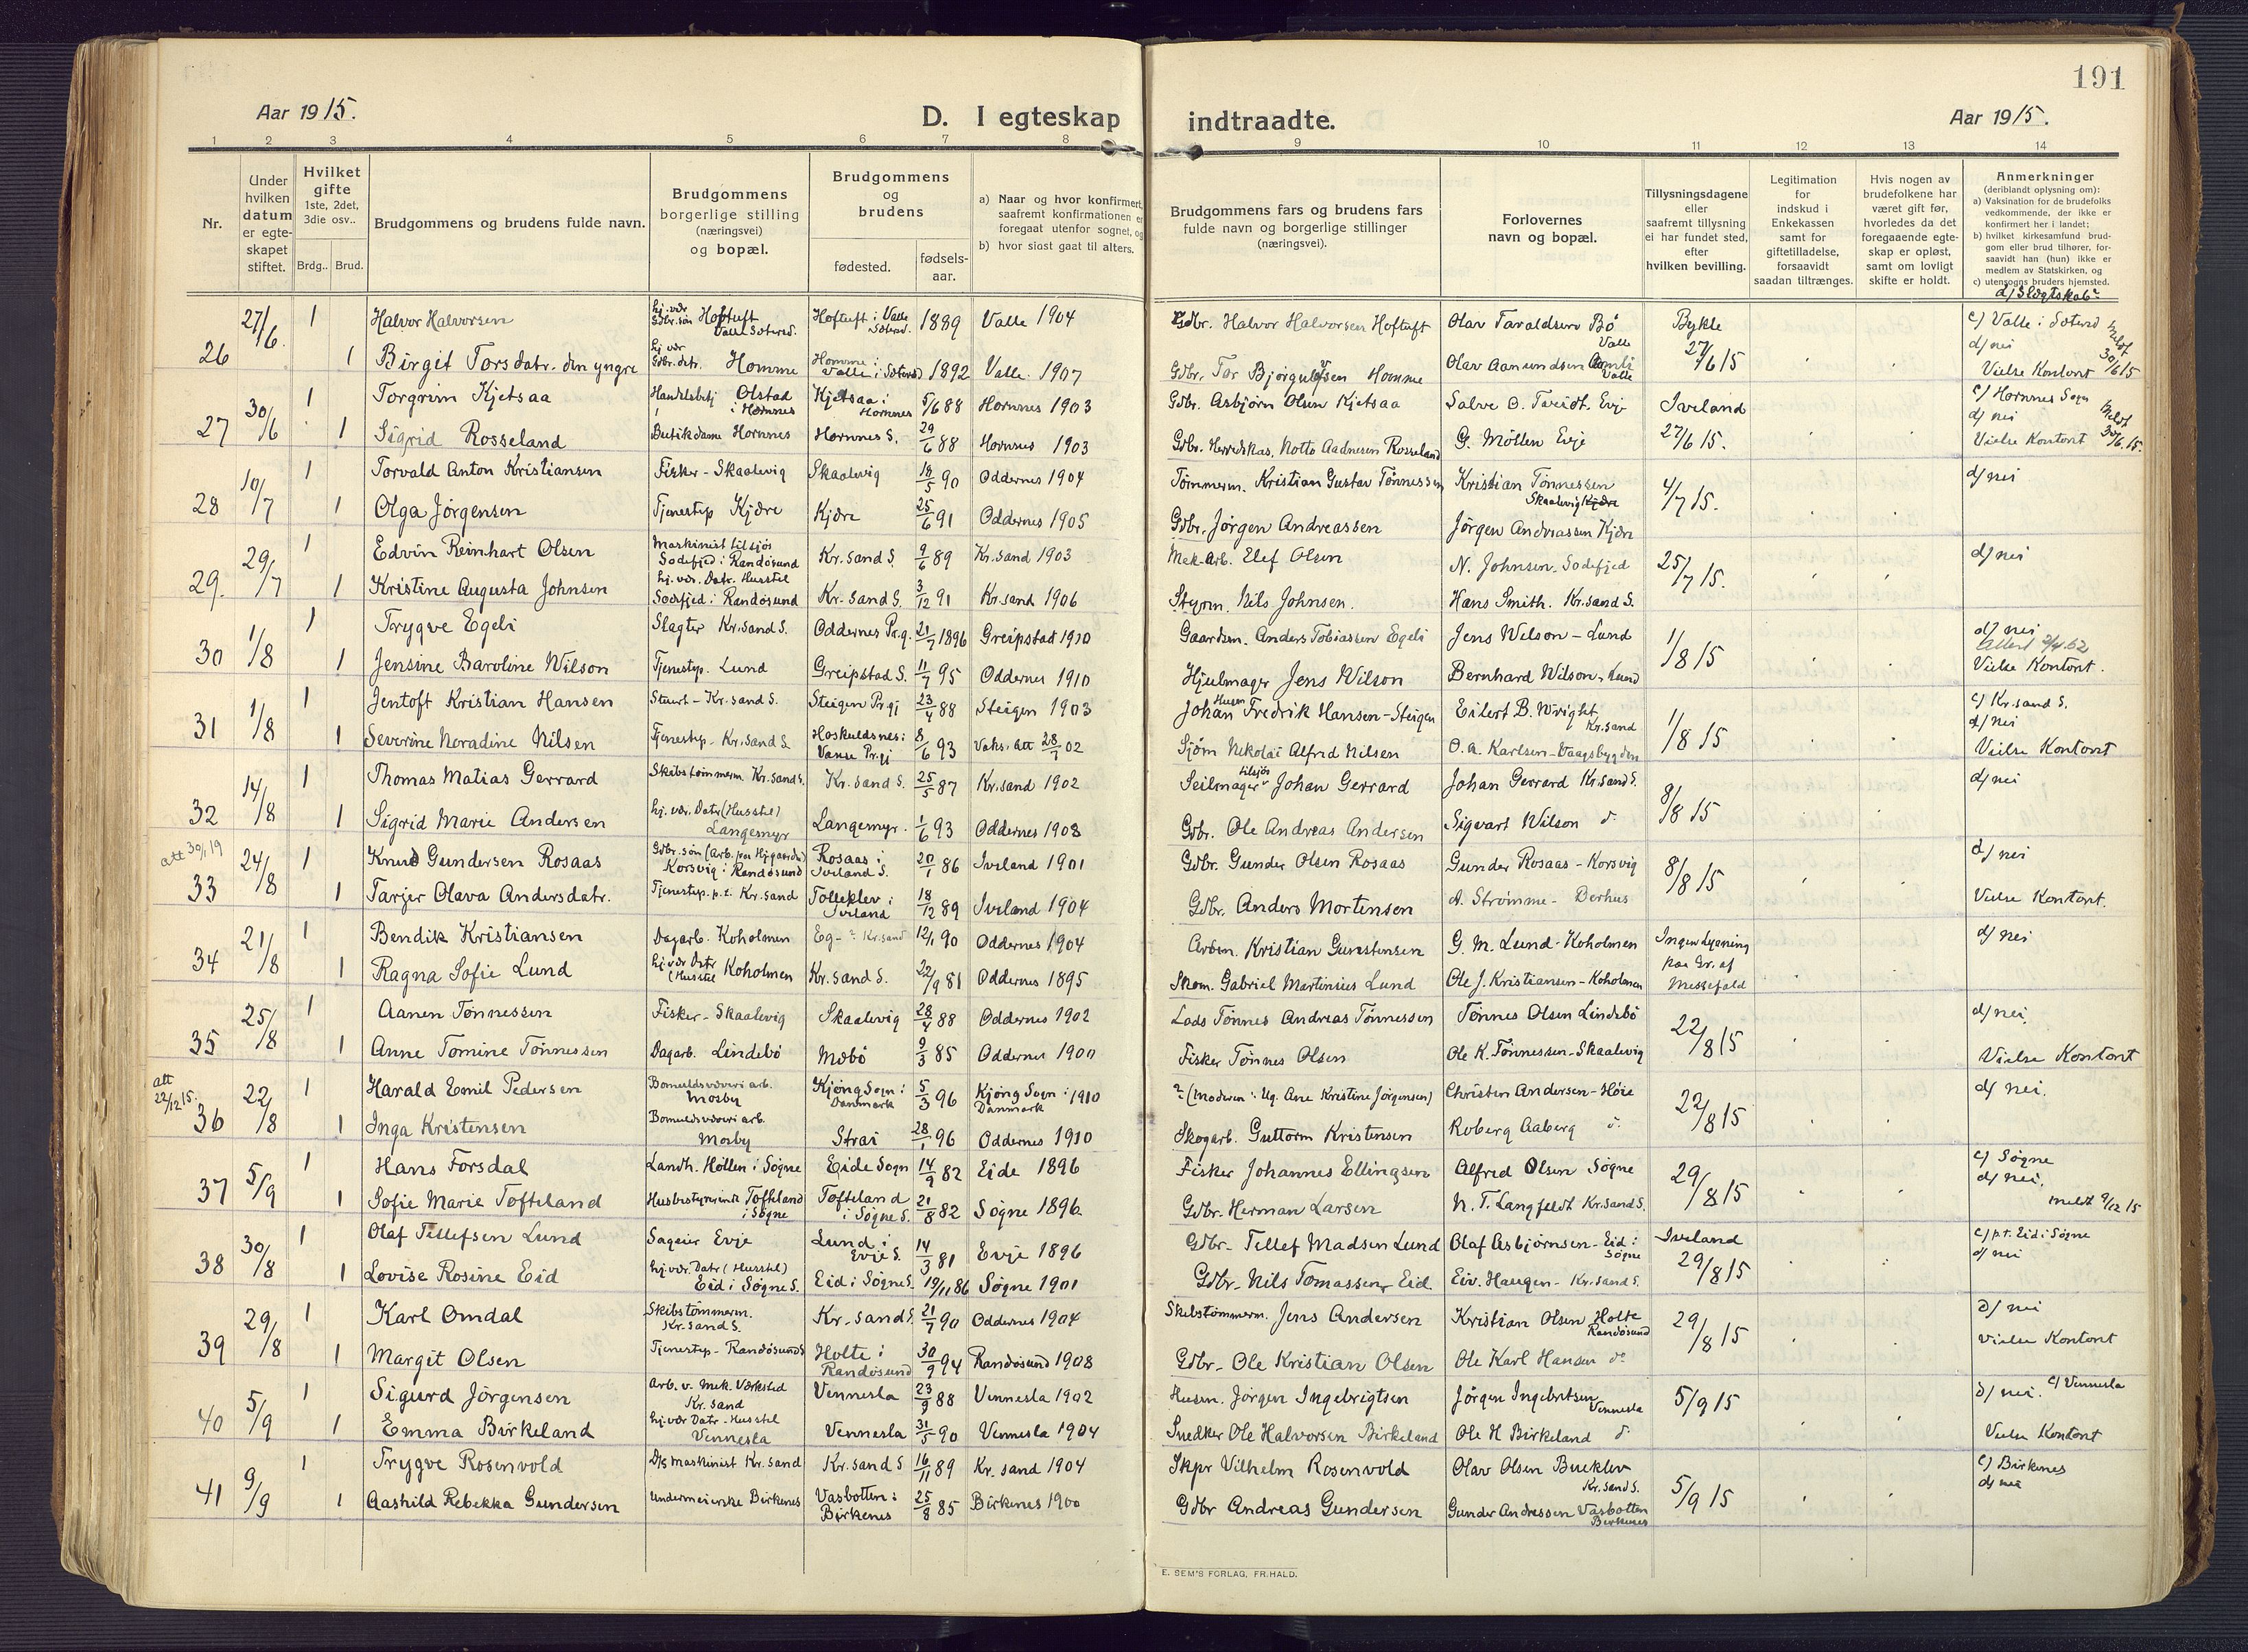 191
Aar 1915.
D. I egteskap indtraadte.
Aar 1915.
1 2 3 4 5 6 7 8 9 10 11 12 13 14
Nr.
Under hvilken datum er egteskapet stiftet.
Hvilket gifte 1ste, 2det, 3die osv..
Brdg.. Brud.
Brudgommens og brudens fulde navn.
Brudgommens borgerlige stilling (næringsvei) og bopæl.
Brudgommens og brudens
fødested.
fødsels-aar.
a) Naar og hvor konfirmert, saafremt konfirmationen er foregaat utenfor sognet, og
b) hvor sidst gaat til alters.
Brudgommens fars og brudens fars fulde navn og borgerlige stillinger (næringsvei).
Forlovernes navn og bopæl.
Tillysningsdagene eller saafremt tillysning ei har fundet sted, efter hvilken bevilling.
Legitimation for indskud i Enkekassen samt for giftetilladelse, forsaavidt saadan tiltrænges.
Hvis nogen av brudefolkene har været gift før, hvorledes da det foregaaende egteskap er opløst, samt om lovligt skifte er holdt.
Anmerkninger (deriblandt oplysning om):
a) Vaksination for de brudefolks vedkommende, der ikke er konfirmert her i landet;
b) hvilket kirkesamfund brudgom eller brud tilhører, forsaavidt han (hun) ikke er medlem av Statskirken, og
c) utensogns bruders hjemsted.
d) Slegtskab
26 27/6 1 Halvor Halvorsen hj. vær. Gdbr. søn Hoftuft Valle Sætersd. Hoftuft i Valle Sætersd. 1889 Valle 1904 Gdbr. Halvor Halvorsen Hoftuft Olav Taraldsen Bø Valle Bykle 27/6 15 c) Valle i Sætersd
1 Birgit Torsdatr. den yngre hj vær Gdbr. datr. Homme Homme i Valle i Sætersd 1892 Valle 1907 Gdbr. Tor Bjørgulfsen Homme Olav Aamundsen Valle d) nei Vielse Kontort meldt 30/6 15
27 30/6 1 Torgrim Kjetsaa Handelsbetj Olstad i Hornnes Kjetsaa i Hornnes 5/6 88 Hornnes 1903 Gdbr. Asbjørn Olsen Kjetsaa Salve O. Tveidt. Evje Iveland 27/6 15. c) Hornnes Sogn
1 Sigrid Rosseland Butikdame Hornnes Hornnes S. 29/6 88 Hornnes 1903 Gdbr. Herredskas. Notto Aadnesen Rosseland G. Møllen Evje d) nei Vielse Kontort Meldt 30/6. 15.
28 10/7 1 Torvald Anton Kristiansen Fisker - Skaalevig Skaalevig 18/5 90 Oddernes 1904 Tømmerm. Kristian Gustav Tønnessen Kristian Tønnessen Skaalevig 4/7 15. d) nei
1 Olga Jørgensen Tjenestep Kjære Kjære 25/6 91 Oddernes 1905 Gdbr. Jørgen Andreassen Jørgen Andreassen Kjære
29. 29/7 1 Edvin Reinhart Olsen Maskinist tilsjøs Sodefjed i Randøsund Kr. Sand S. 9/6 89 Kr. Sand 1903 Mek-arb. Elef Olsen N. Johnsen. Sodefjed 25/7 15. d) nei
1 Kristine Augusta Johnsen hj. vær. Datr. Husstel Sodefjed i Randøsund Kr. Sand S. 3/12 91 Kr. sand 1906 Styrm. Nils Johnsen. Hans Smith. Kr. sand S.
30 1/8 1 Trygve Egeli Slagter Kr. sand S. Oddernes Pr.g. 21/7 1896 Greipstad 1910 Gaardsm. Anders Tobiassen Egeli Jens Wilson - Lund 1/8 15 d) nei Attest 2/4 62
1 Jensine Karoline Wilson Tjenestep. Lund Greipstad S. 11/7 95 Oddernes 1910 Hjulmager Jens Wilson Bernhard Wilson, Lund Vielse Kontort.
31 1/8 1 Jentoft Kristian Hansen Stuert - Kr. sand S. Steigen Pr.gj 23/4 88 Steigen 1903 Husm Johan Fredrik Hansen - Steigen Eilert B. Wright Kr. sand 1/8 15 c) Kr. sand S. d) nei
1 Severine Noradine Nilsen Tjenestep. Kr. sand S. Hoskuldsnes i Vanse Pr.gj 8/6 93 Vaks. Att 28/7 02 Sjøm Nikolai Alfred Nilsen O. A. Karlsen - Vaagsbygden Vielse Kontort
32 14/8 1 Thomas Matias Gerrard Skibstømmerm Kr. sand S. Kr. sand S. 25/5 87 Kr. sand 1902 Seilmager tilsjøs Johan Gerrard Johan Gerrard Kr. sand S. 8/8 15 d) nei
1 Sigrid Marie Andersen hj. vær. Datr (Husstel) Langemyr Langemyr. 1/6 93 Oddernes 1908 Gdbr. Ole Andreas Andersen Sigvart Wilson do
att 30/1 19
33 24/8 1 Knud Gundersen Rosaas Gdbr. søn Korsvig i Randøsund Rosaas i Iveland S. 20/1 86 Iveland 1901 Gdbr. Gunder Olsen Rosaas Gunder Rosaas - Korsvig 8/8 15 d) nei
1 Tarjer Olava Andersdatr. Tjenestep. p.t. Kr. sand Tolleklev i Iveland 18/12 89 Iveland 1904 Gdbr. Anders Mortensen A. Strømme - Derhus Vielse Kontort.
34 21/8 1 Bendik Kristiansen Dagarb. Koholmen Eg - Kr. sand 12/1 90 Oddernes 1904 Arbm. Kristian Gunstensen G. M. Lund - Koholmen Ingen Lysning paa Gr. af Messefald d) nei
1 Ragna Sofie Lund hj. vær Datr (Husstel Koholmen Kr. Sand S. 22/9 81 Oddernes 1895 Skom. Gabriel Martinius Lund Ole J. Kristiansen - Koholmen
35 25/8 1 Aanen Tønnessen Fisker - Skaalevig Skaalevig 28/4 88 Oddernes 1902 Lods Tønnes Andreas Tønnessen Tønnes Olsen Lindebø 22/8 15 d) nei.
1 Anne Tomine Tønnessen Dagarb. Lindebø Mæbø 9/3 85 Oddernes 1900 Fisker Tønnes Olsen Ole K. Tønnessen - Skaalevig Vielse Kontort
att 22/12 15.
36 22/8 1 Harald Emil Pedersen Bomuldsvæveri arb. Mosby Kjøng Sogn i Danmark 5/3 96 Kjøng Sogn i Danmark 1910 ? (Moderen: Ug. Ane Kristine Jørgensen) Christen Andersen - Høie 22/8 15 d) nei.
1 Inga Kristensen Bomuldsvæveri arb. Mosby Strai 28/1 96 Oddernes 1910 Skogarb. Guttorm Kristensen Roberg Aaberg do
37 5/9 1 Hans Forsdal Landh. Høllen i Søgne Eide Sogn 14/9 82 Eide 1896 Fisker Johannes Ellingsen Alfred Olsen Søgne 29/8 15 c) Søgne d) nei.
1 Sofie Marie Tofteland Husbestyrerinde Tofteland i Søgne Tofteland i Søgne S. 21/8 82 Søgne 1896. Gdbr. Herman Larsen N. T. Langfeldt Kr. sand S. meldt 9/12 15
38 30/8 1 Olaf Tellefsen Lund Sageier Evje Lund i Evje S. 14/3 81 Evje 1896 Gdbr - Tellef Madsen Lund Olaf Asbjørnsen - Eid i Søgne Iveland 29/8 15 c) p.t. Eid i Søgne d) nei
1 Lovise Rosine Eid hj. vær. Datr (Husstel) Eid i Søgne S. Eid i Søgne S. 19/11 86 Søgne 1901 Gdbr - Nils Tomassen, Eid Eiv. Haugen - Kr. sand S.
39 29/8 1 Karl Omdal Skibstømmerm. Kr. sand S. Kr. sand S. 21/7 90 Oddernes 1904 Skibstømmerm. Jens Andersen Kristian Olsen Holte Randøsund 29/8 15 d) nei
1 Margit Olsen Tjenestep - Randøsund S Holte i Randøsund 30/9 94 Randøsund 1908 Gdbr - Ole Kristian Olsen Ole Karl Hansen do Vielse Kontort
40 5/9 1 Sigurd Jørgensen Arb. v. Mek. Værksted Kr. sand Vennesla 23/9 88 Vennesla 1902 Husm. Jørgen Ingebrigtsen Jørgen Ingebretsen Vennesla 5/9 15 d) nei. c) Vennesla
1 Emma Birkeland hj. vær Datr - Husstel Vennesla Vennesla 31/5 90 Vennesla 1904 Snedker Ole Halvorsen Birkeland Ole H Birkeland do Vielse Kontort
41 9/9 1 Trygve Rosenvold D/S maskinist Kr. sand Kr. sand S 16/11 89 Kr. sand 1904 Skpr Vilhelm Rosenvold Olav Olsen Bueklev Kr. sand S. 5/9 15 c) Birkenes d) nei
1 Aashild Rebekka Gundersen Undermeierske Birkenes Vasbotten i Birkenes 25/8 85 Birkenes 1900 Gdbr Andreas Gundersen Gunder Andressen Vasbotten Birkenes
E. SEM'S FORLAG, FR.HALD.